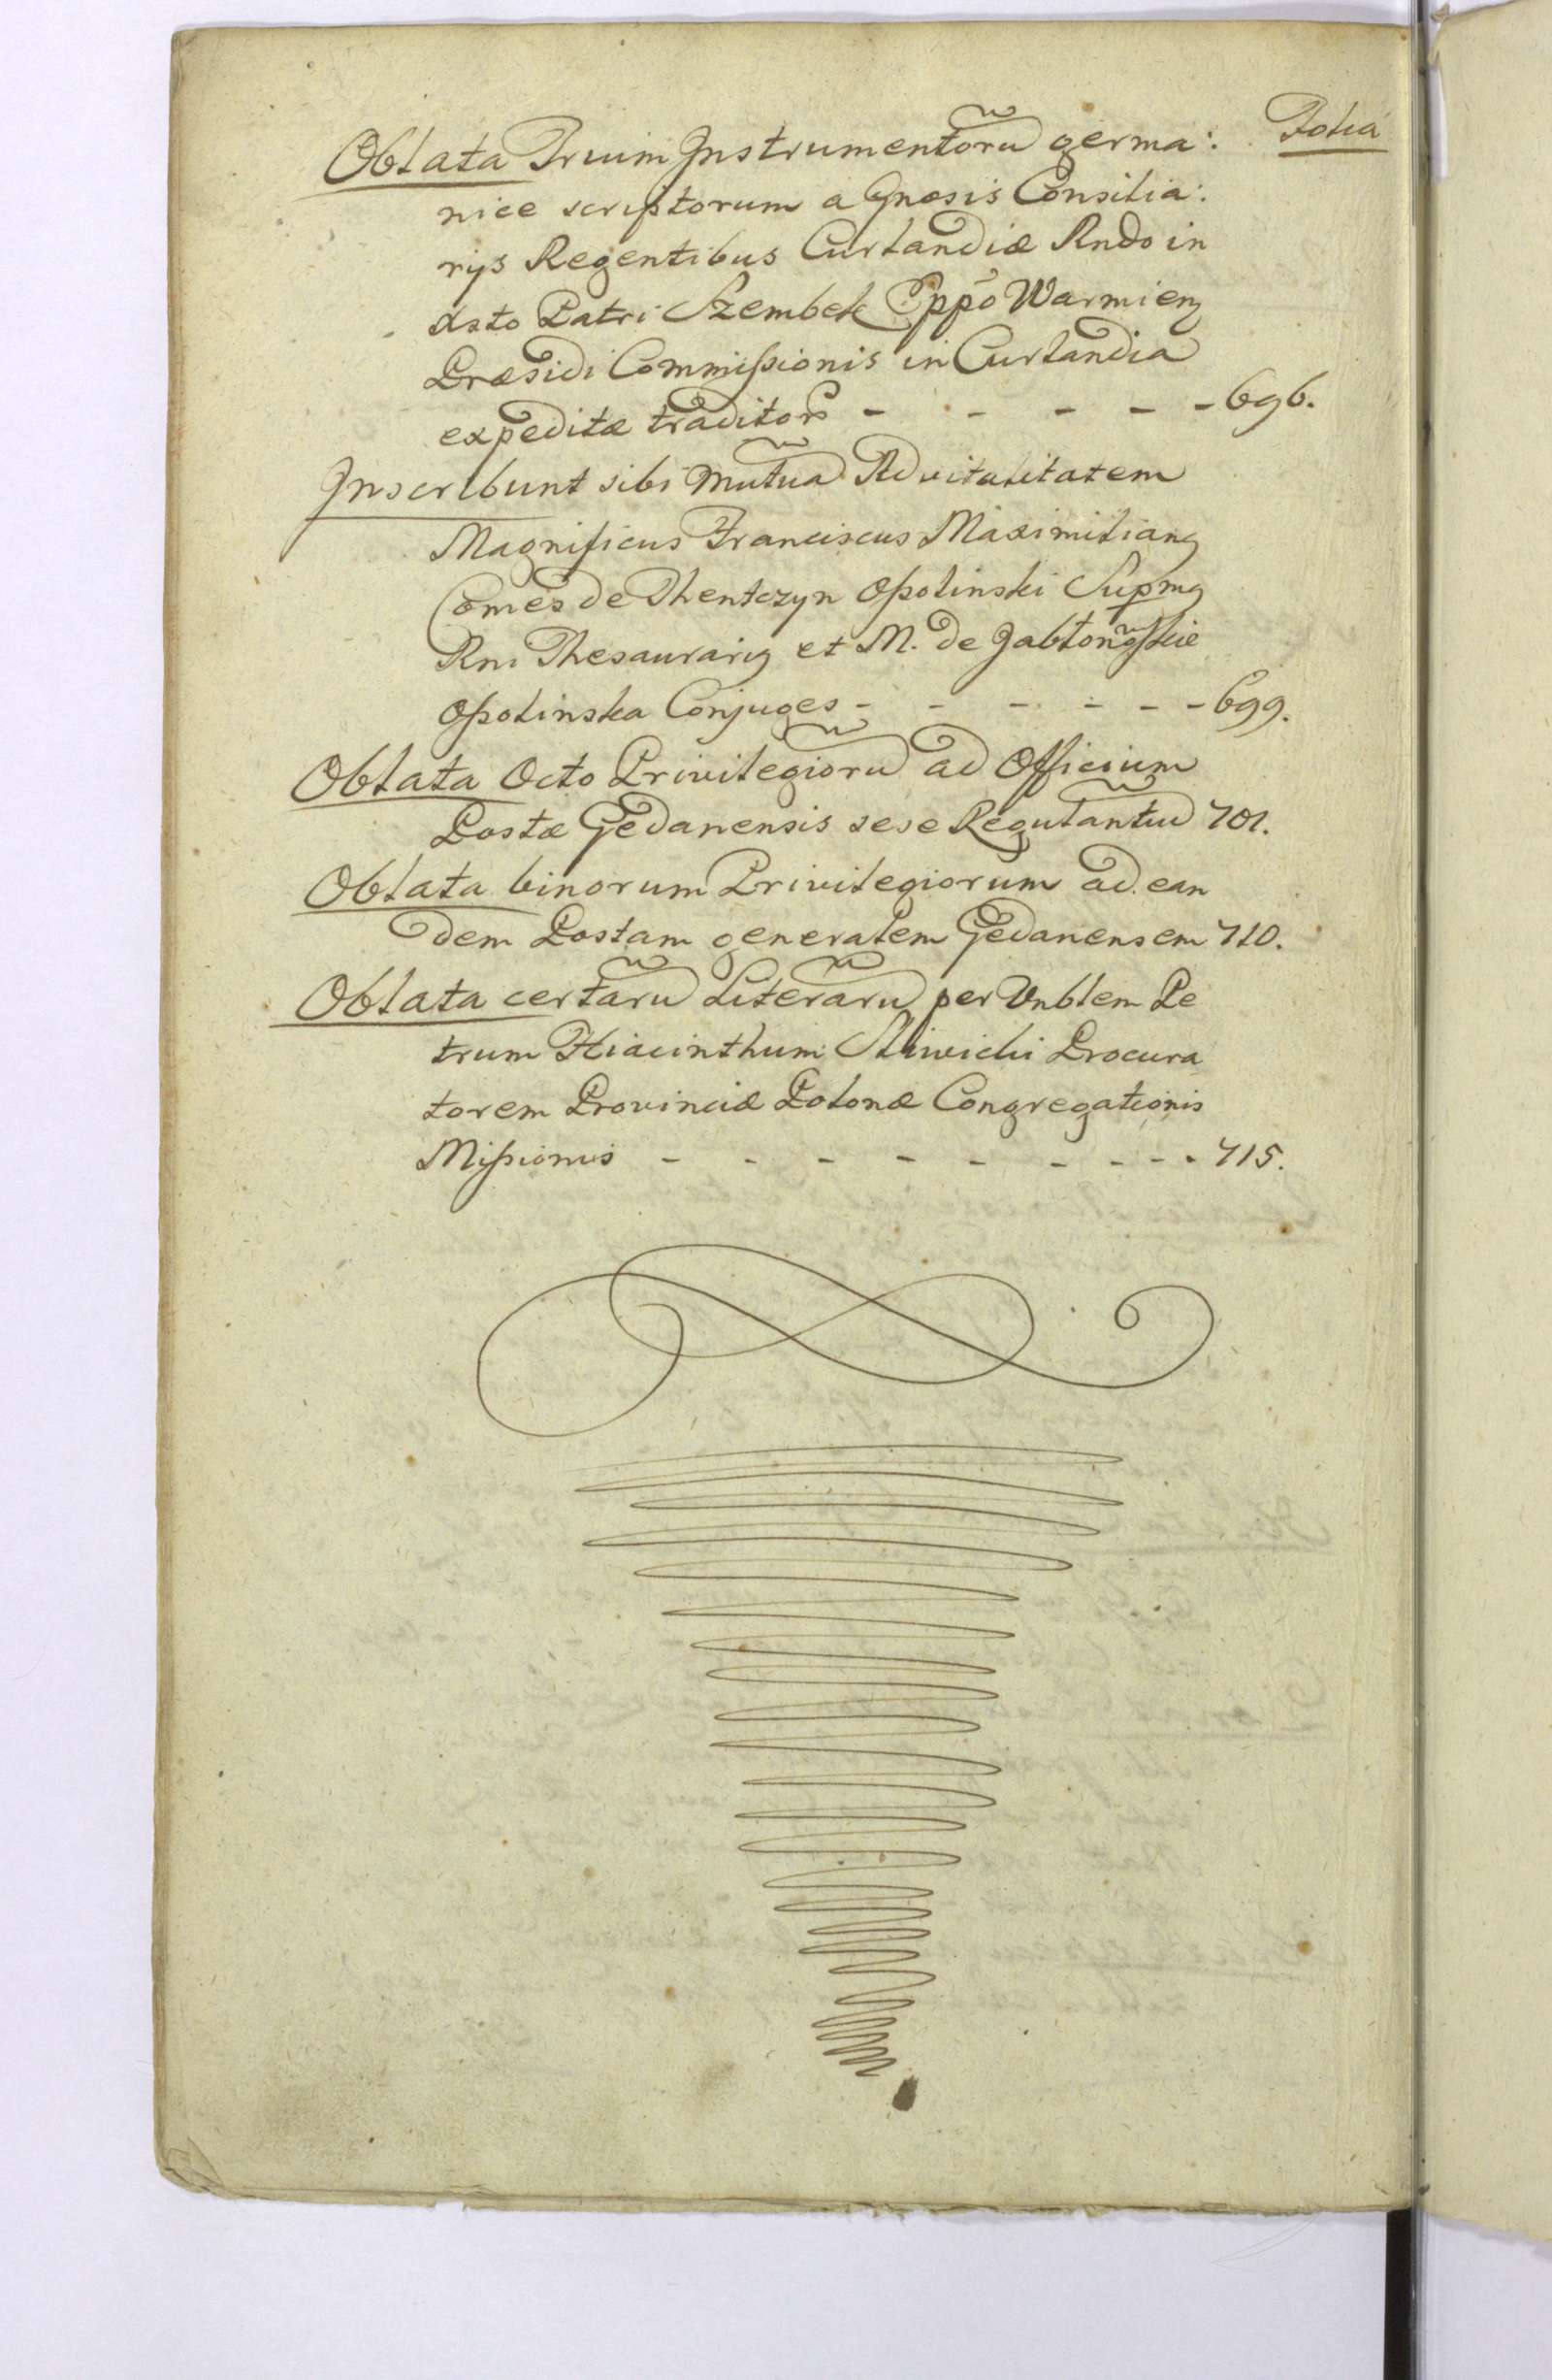 Folia
Oblata Trium Instrumentorũ germa:
nice scriptorum a Gnosis Consilia:
rijs Regentibus Curlandiæ Rndo in
Xsto Patri Szembek Eppo Warmien
Præsidi Commissionis in Curlandia
expeditæ traditor - - - - - 696.
Inscribunt sibi mutuã Advitalitatem
Magnificus Franciscus Maximilianꝯ
Comes de Thentczyn Ossolinski Supmꝯ
Rni Thesaurariꝯ et M. de Jabłonoskie
Ossolinska Conjuges - - - - - - 699.
Oblata Octo Privilegiorũ ad Officium
Postæ Gedanensis sese Regulantiũ 701.
Oblata binorum Privilegiorum ad ean
dem Postam generalem Gedanensem 710.
Oblata certarũ Literarũ per Vnblem Pe
trum Hiacinthum Sliwicki Procura
torem Provinciæ Polonæ Congregationis
Missionis - - - - - - - - - 715.